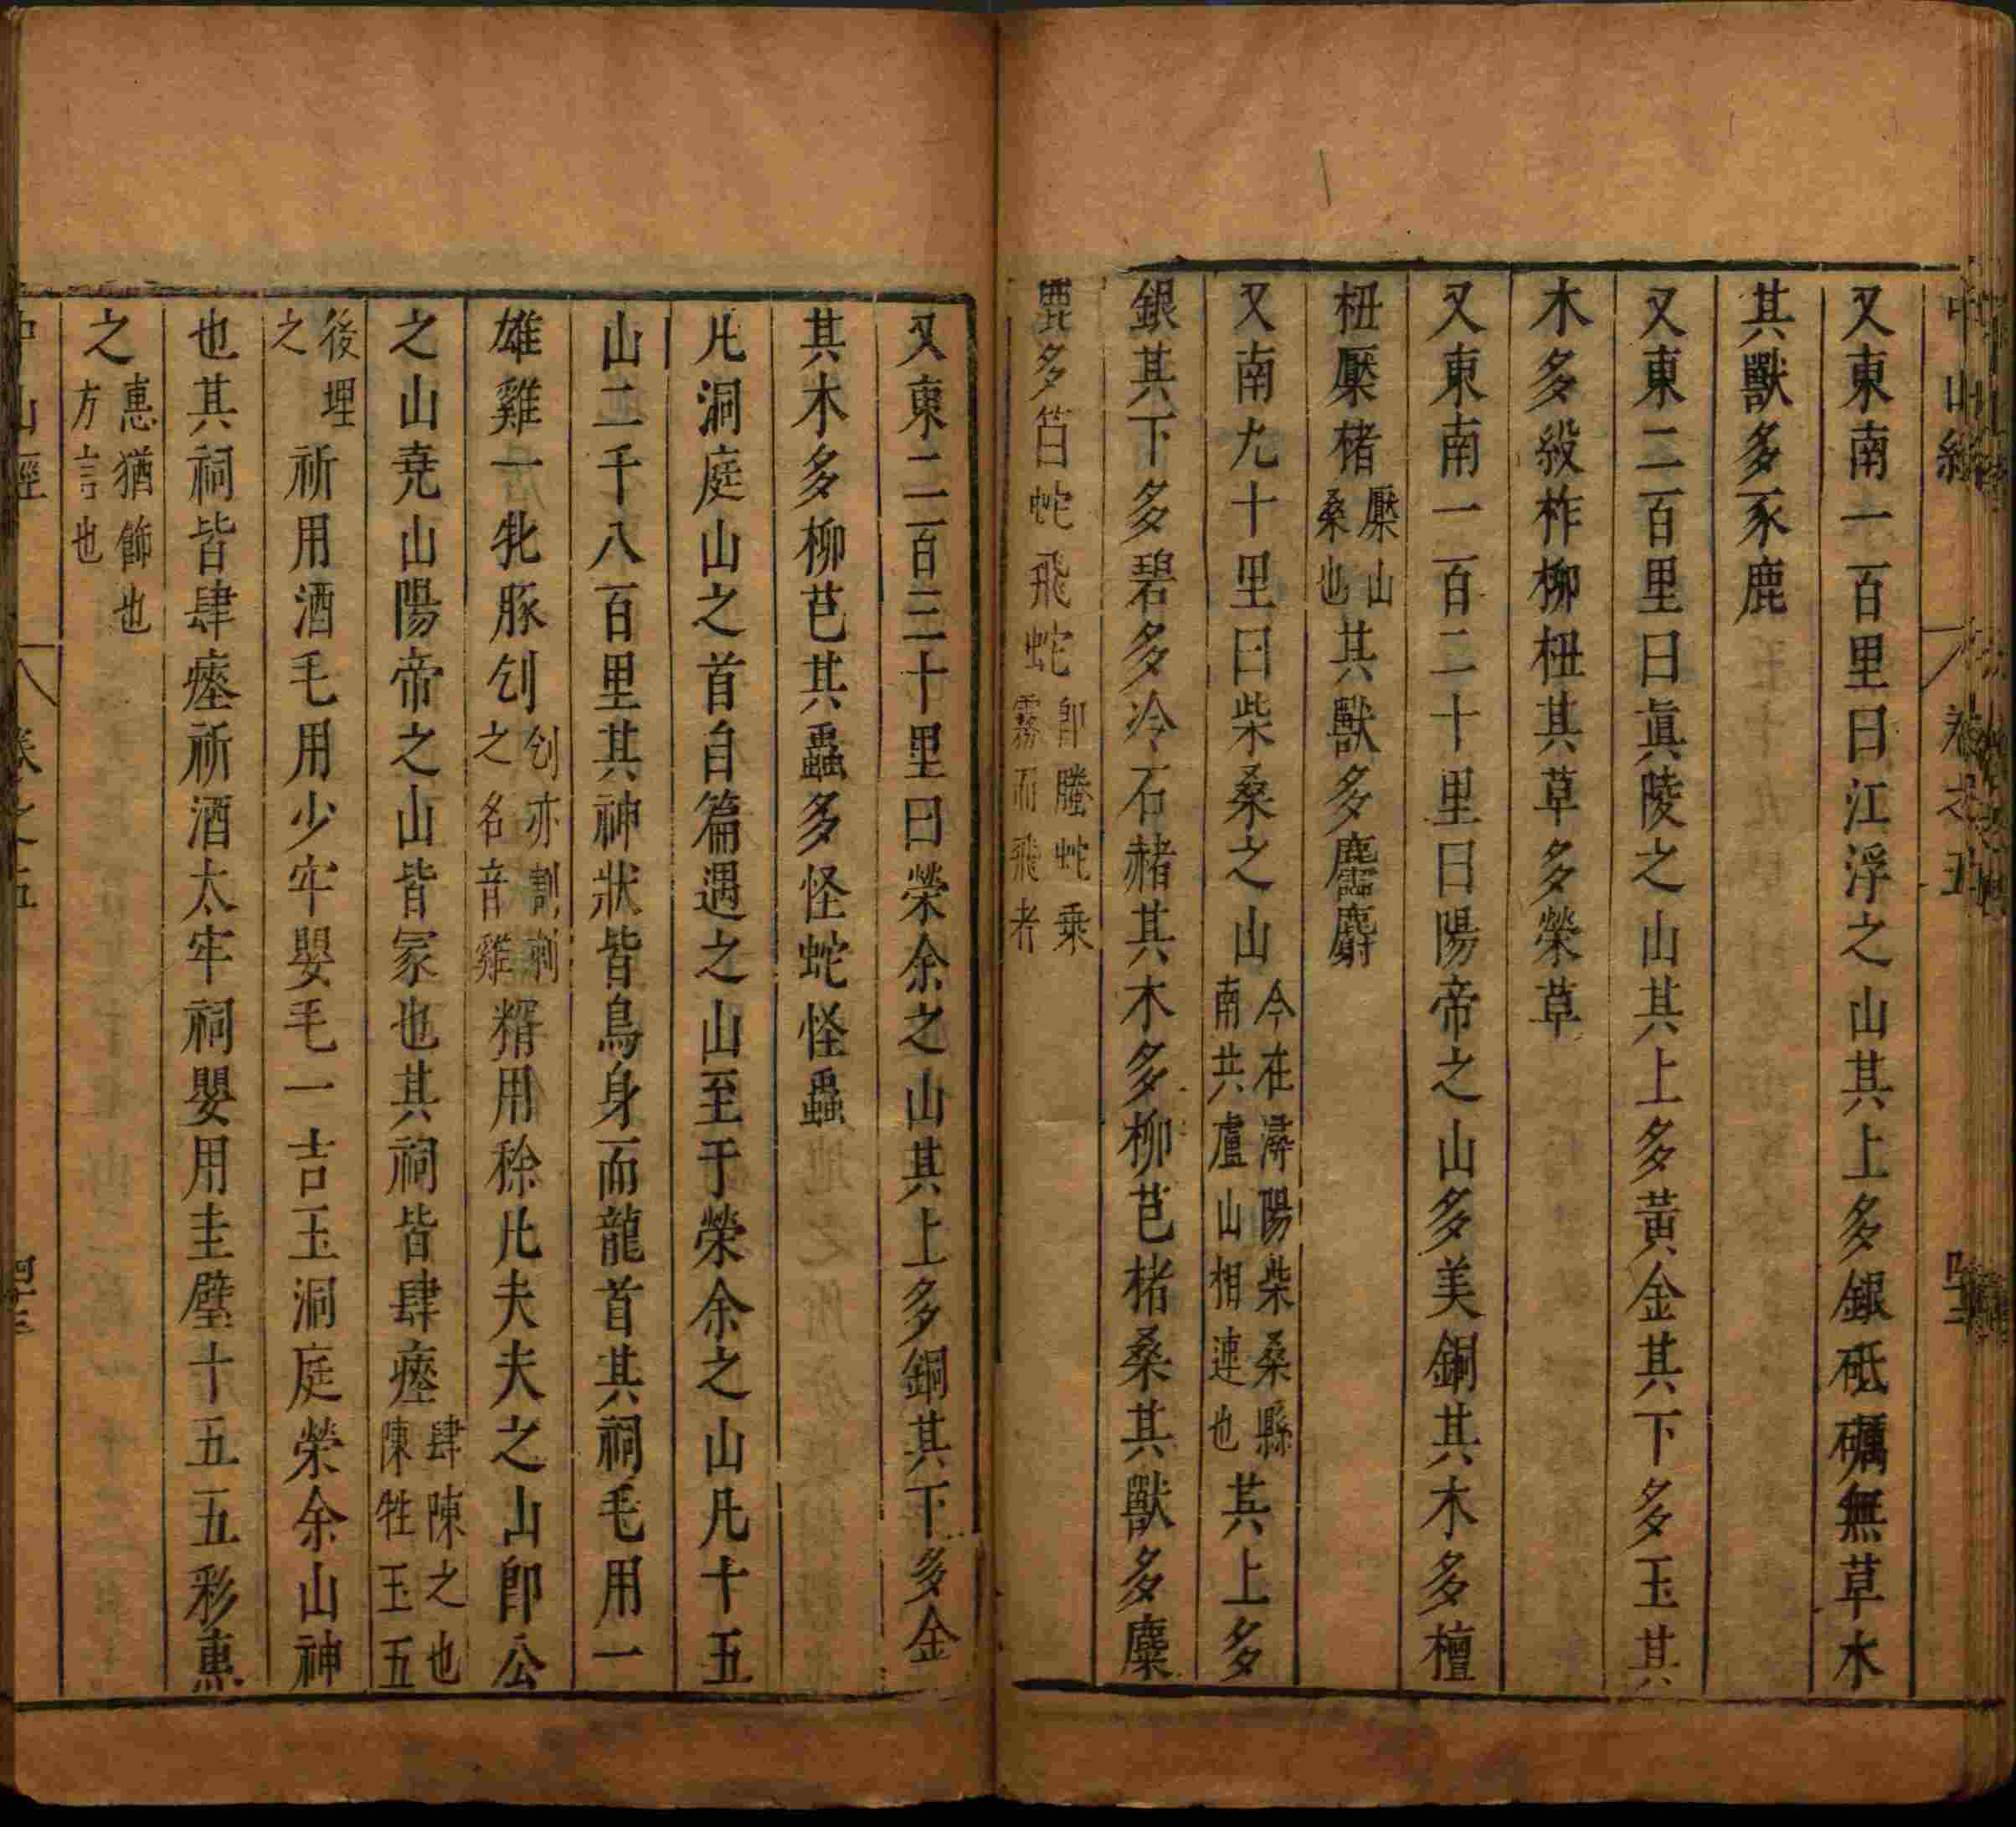 又東南一百里曰江浮之山其上多銀砥礪無草木
其獸多豕鹿
又東二百里曰眞陵之山其上多黃金其下多玉其
木多穀柞柳杻其草多榮草
又東南一百二十里曰陽帝之山多美銅其木多檀
杻檿楮檿山桑也其獸多麢麝
又南九十里曰柴桑之山今在潯陽柴桑縣南共廬山相連也其上多
銀其下多碧多泠石赭其木多柳芑楮桑其獸多麋
鹿多白蛇飛蛇卽騰蛇乘霧而飛者
又東二百三十里曰榮余之山其上多銅其下多金
其木多柳芑其蟲多怪蛇怪蟲
凡洞庭山之首自篇遇之山至于榮余之山凡十五
山二千八百里其神狀皆鳥身而龍首其祠毛用一
雄雞一牝豚刉刉亦割刺之名音雞糈用稌凡夫夫之山卽公
之山堯山陽帝之山皆冢也其祠皆肆瘞肆陳之也陳牲玉五
後埋之祈用酒毛用少牢嬰毛一吉玉洞庭榮余山神
也其祠皆肆瘞祈酒太牢祠嬰用圭璧十五五彩惠
之惠猶飾也方言也
中山經 卷之五